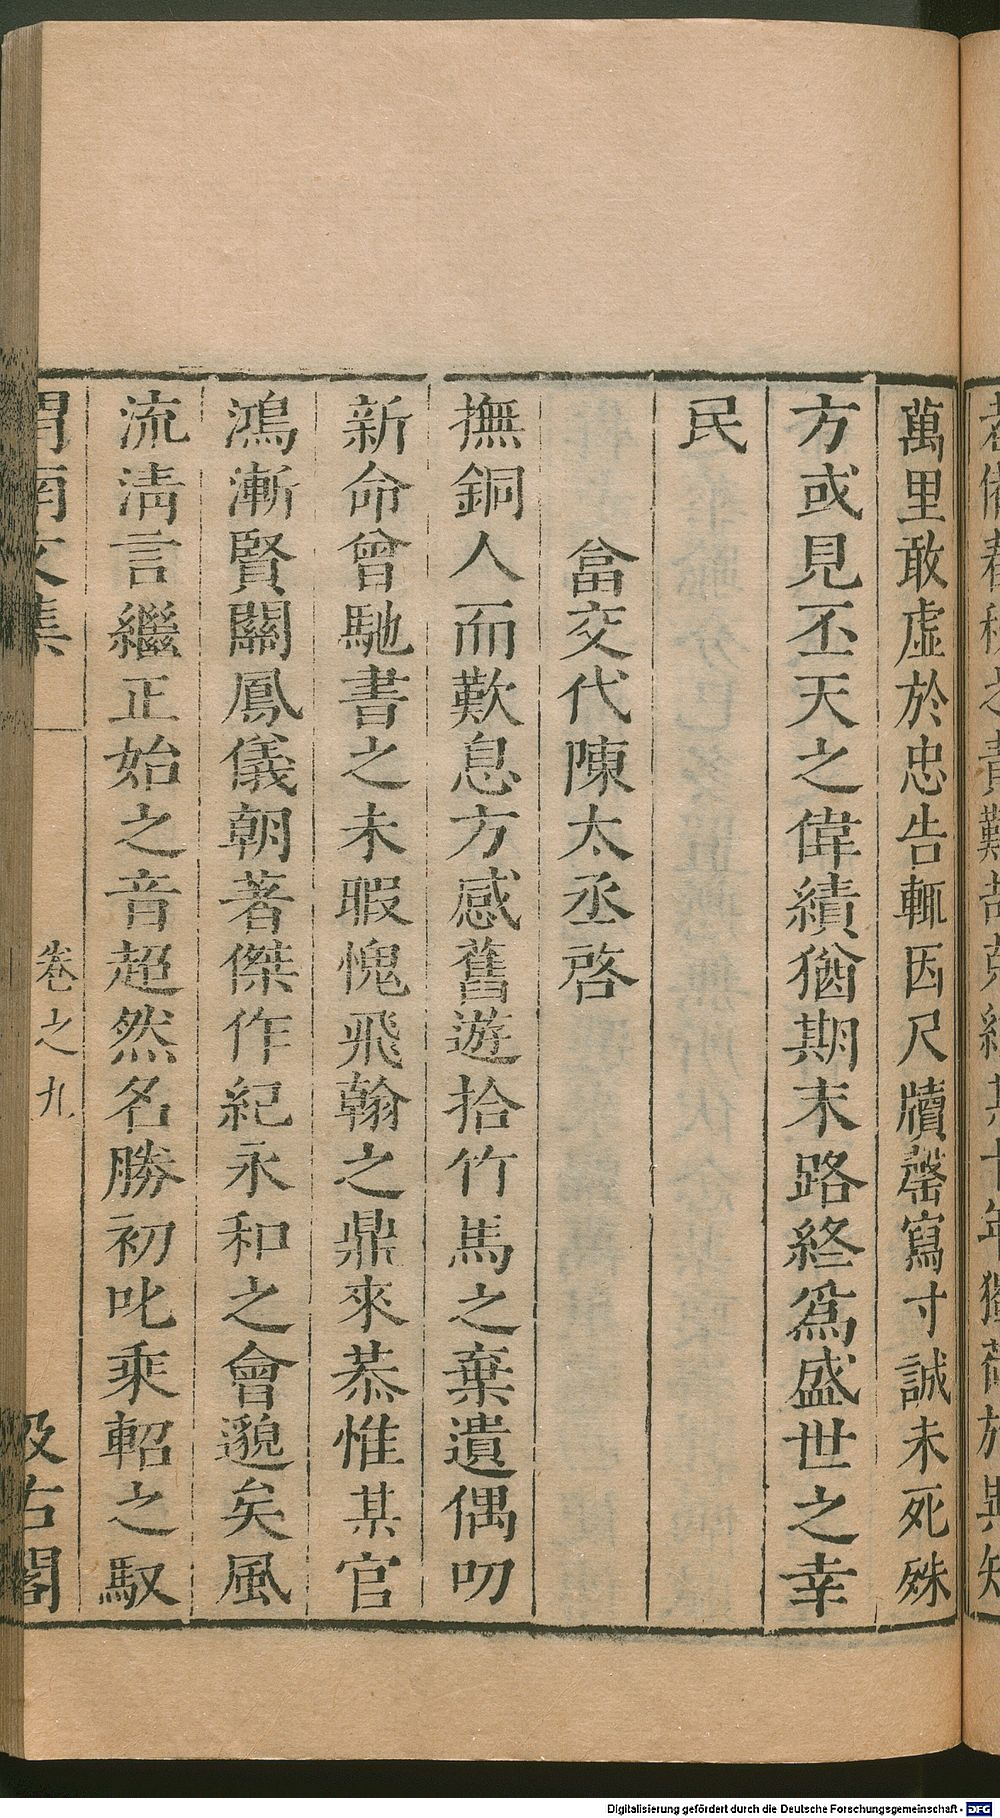 萬里敢虛於忠告輒因尺牘罄寫寸誠未死殊
方或見丕天之偉績猶期末路終爲盛世之幸
民
畣交代陳太丞啓
撫銅人而歎息方感舊遊拾竹馬之棄遺偶叨
新命曾馳書之未暇愧飛翰之鼎來恭惟某官
鴻漸賢關鳳儀朝著傑作紀永和之會邈矣風
流淸言繼正始之音超然名勝初叱乘軺之馭
渭南文集
卷之九
汲古閣
Digitalisierung gefördert durch die Deutsche Forschungsgemeinschaft - DFG